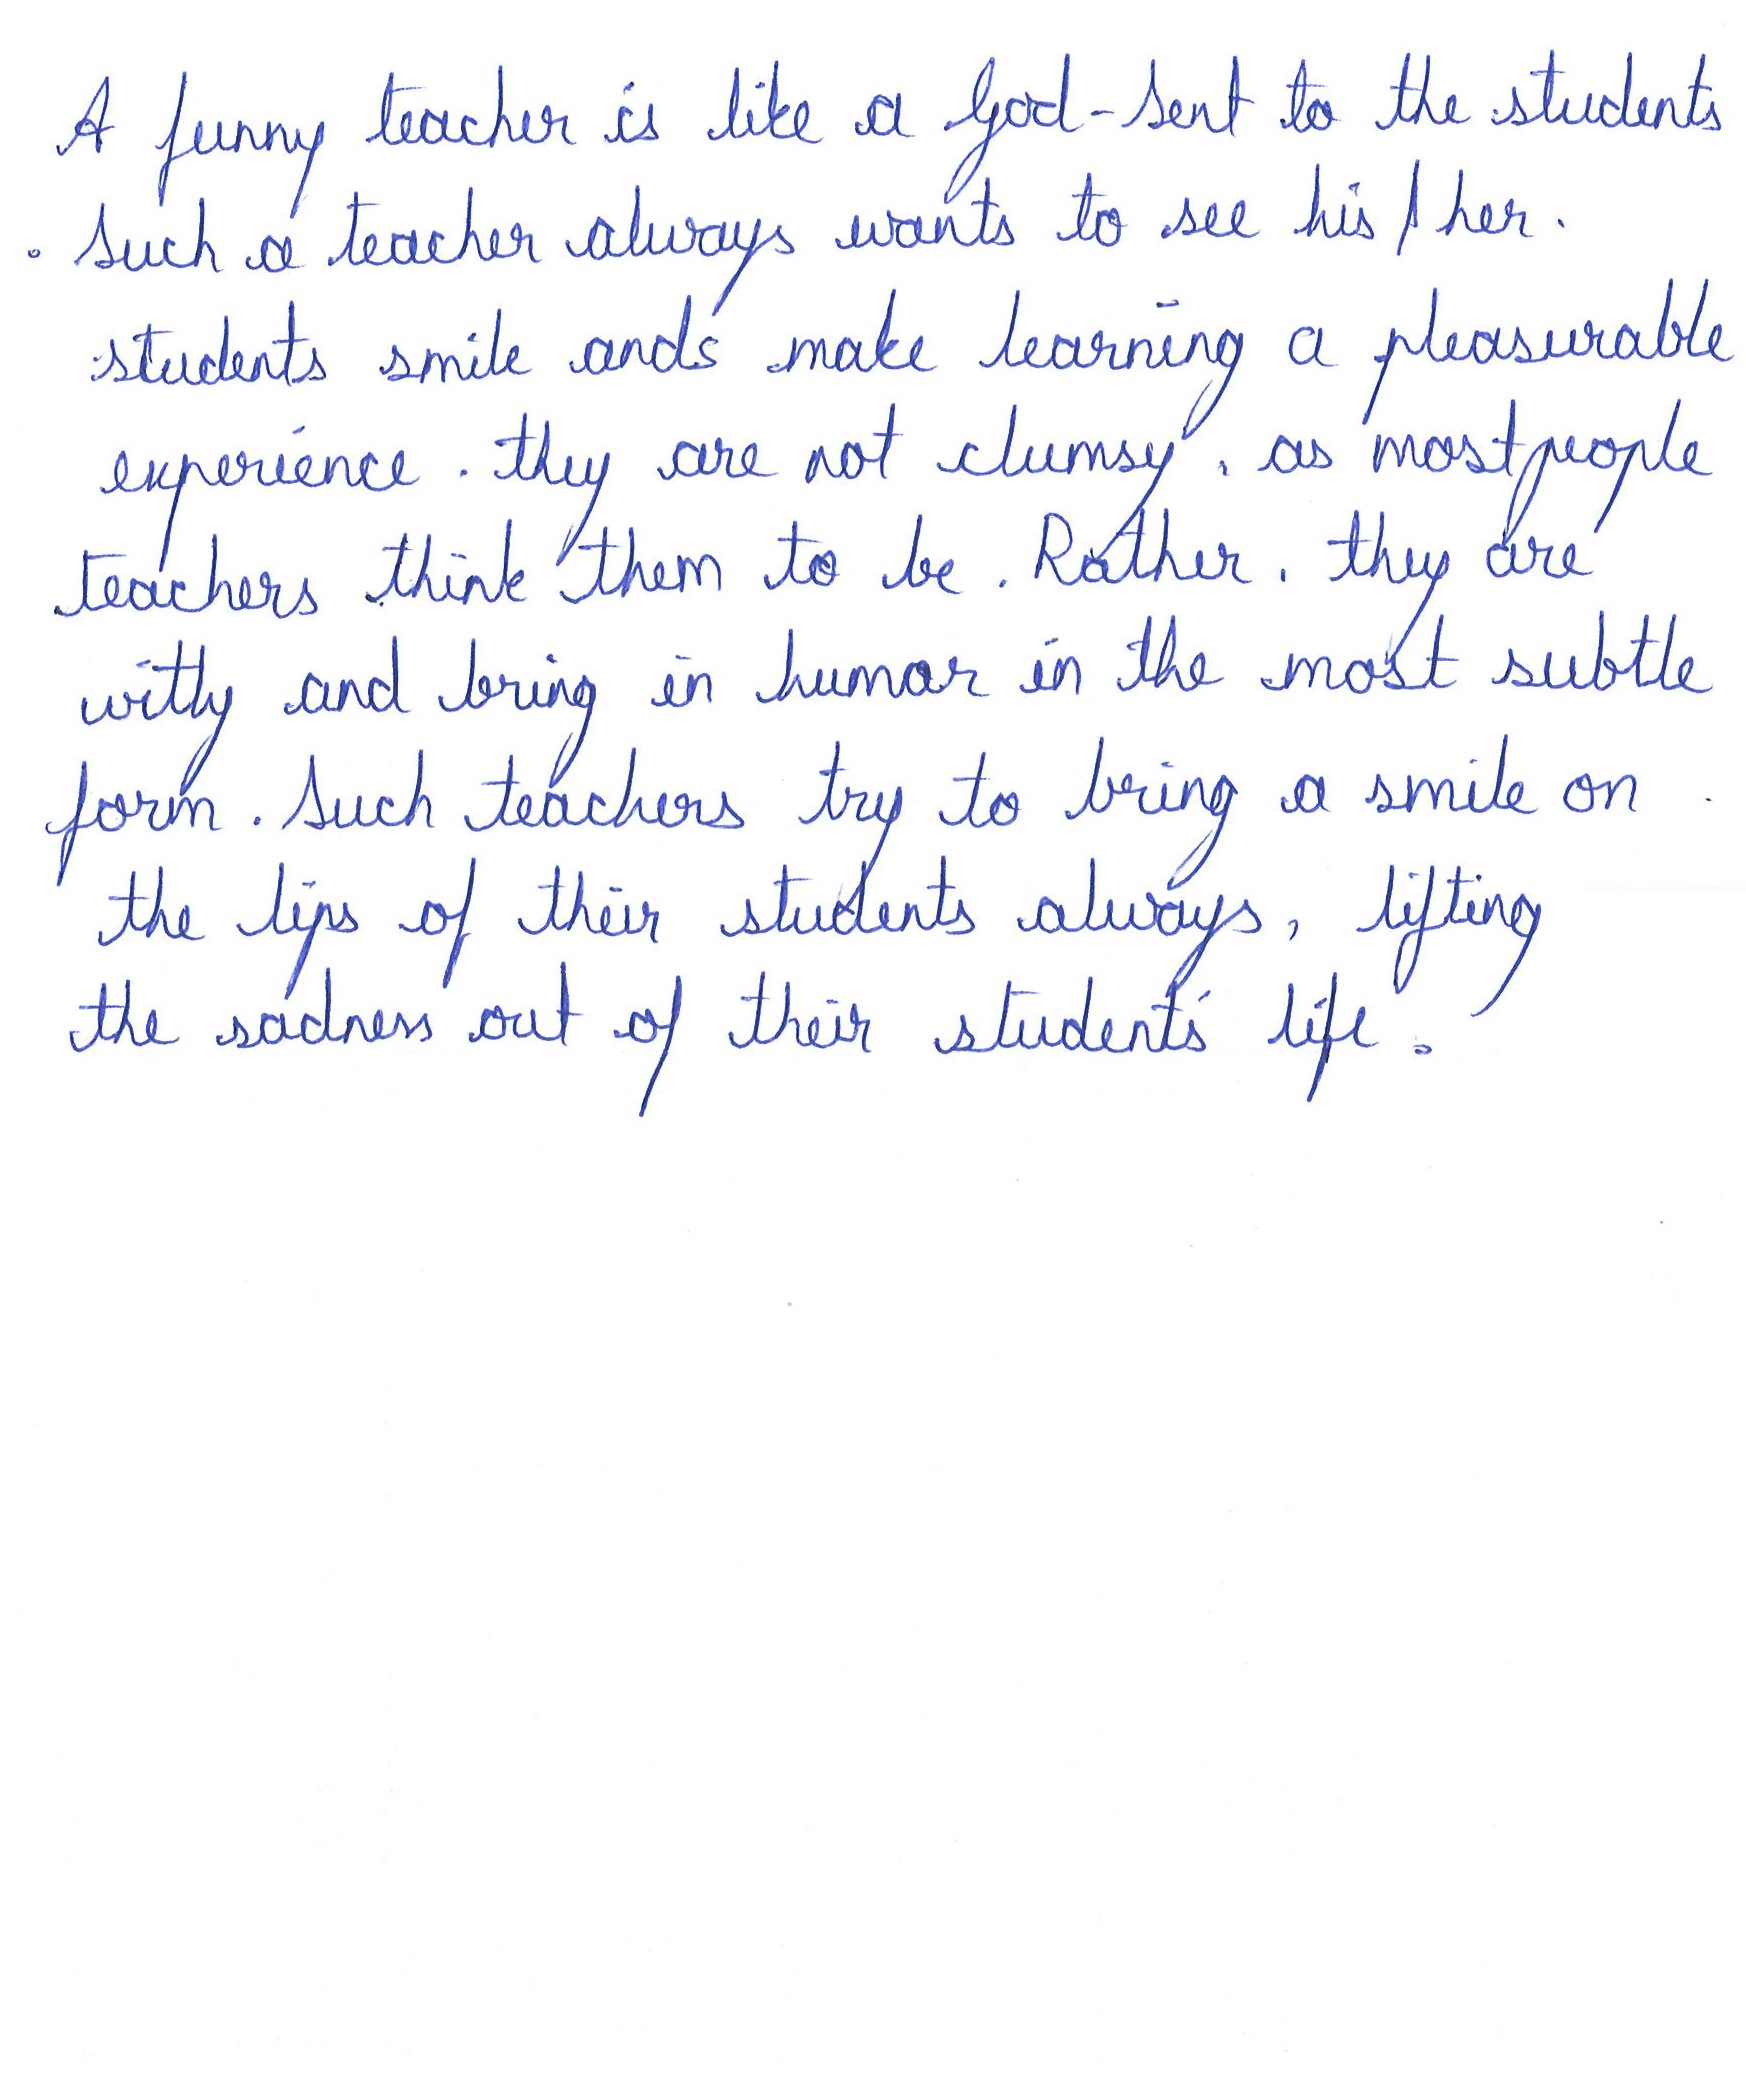 A funny teacher is like a God-Sent to the students
. Such a teacher always wants to see his/her.
students smile ands make learning a pleasurable
experience. they are not clumsy, as most people
teachers think them to be. Rather, they are
witty and bring in humor in the most subtle
form. Such teachers try to bring a smile on
the lips of their students always, lifting
the sadness out of their students' life.